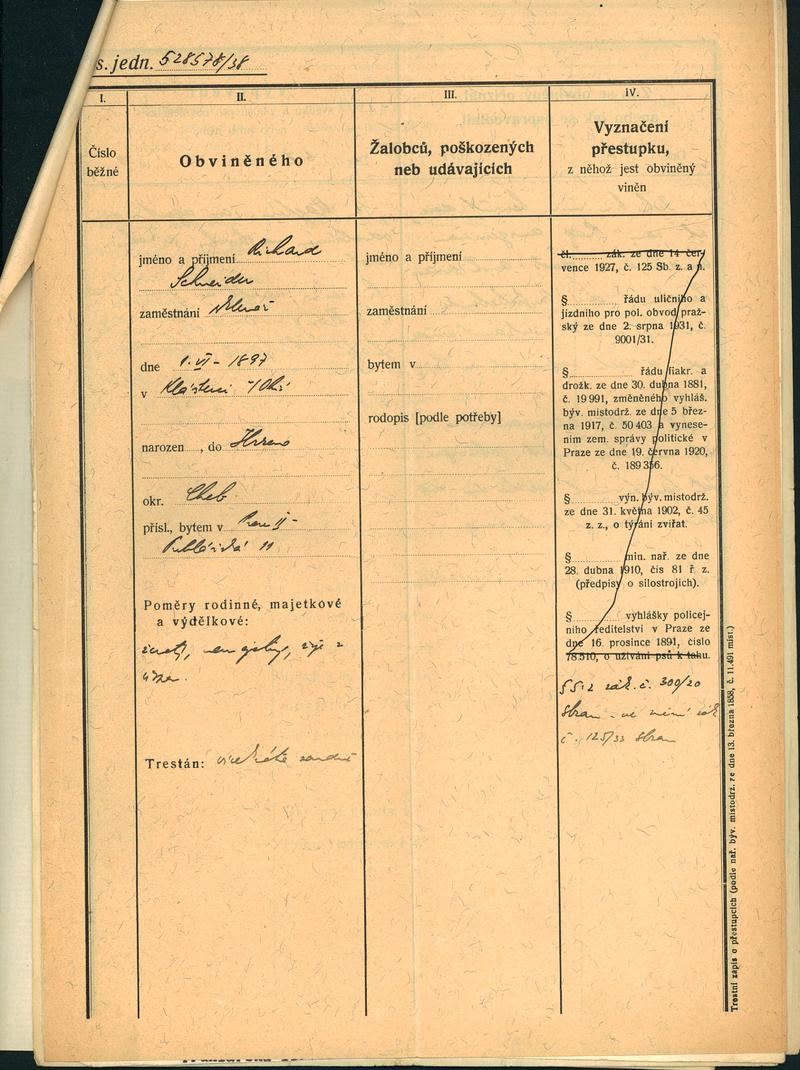 s. jedn. 528578/38
I.
II.
III.
IV.
Číslo
běžné
Obviněného
Žalobců, poškozených
neb udávajících
Vyznačení
přestupku,
z něhož jest obviněný
viněn
jméno a příjmení Richard
Schneider
zaměstnání
dne 1. VI - 1897
v
narozen , do
okr. Cheb
přísl., bytem v Praze II -
11
Poměry rodinné, majetkové
a výdělkové:
ženatý,
Trestán: vícekráte
jméno a příjmení
zaměstnání
bytem v
rodopis [podle potřeby]
čl. zák. ze dne 14 čer-
vence 1927, č. 125 Sb. z. a n.
§ řádu uličního a
jízdního pro pol. obvod praž-
ský ze dne 2. srpna 1931, č.
9001/31.
§ řádu fiakr. a
drožk. ze dne 30. dubna 1881,
č. 19 991, změněného vyhláš.
býv. místodrž. ze dne 5 břez-
na 1917, č. 50 403 a vynese-
ním zem. správy politické v
Praze ze dne 19. června 1920,
č. 189 356.
§ výn. býv. místodrž.
ze dne 31. května 1902, č. 45
z. z., o týrání zvířat.
§ min. nař. ze dne
28. dubna 1910, čís 81 ř. z.
(předpisy o silostrojích).
§ vyhlášky policej-
ního ředitelství v Praze ze
dne 16. prosince 1891, číslo
78.510, o užívání psů k tahu.
§§ 2 zák. č. 300/20
Sb z a n - ve znění zák
č. 125/33 Sb z a n
Trestní zápis o přestupcích (podle nař. býv. místodrž. ze dne 13. března 1858, č. 11.491 míst.)